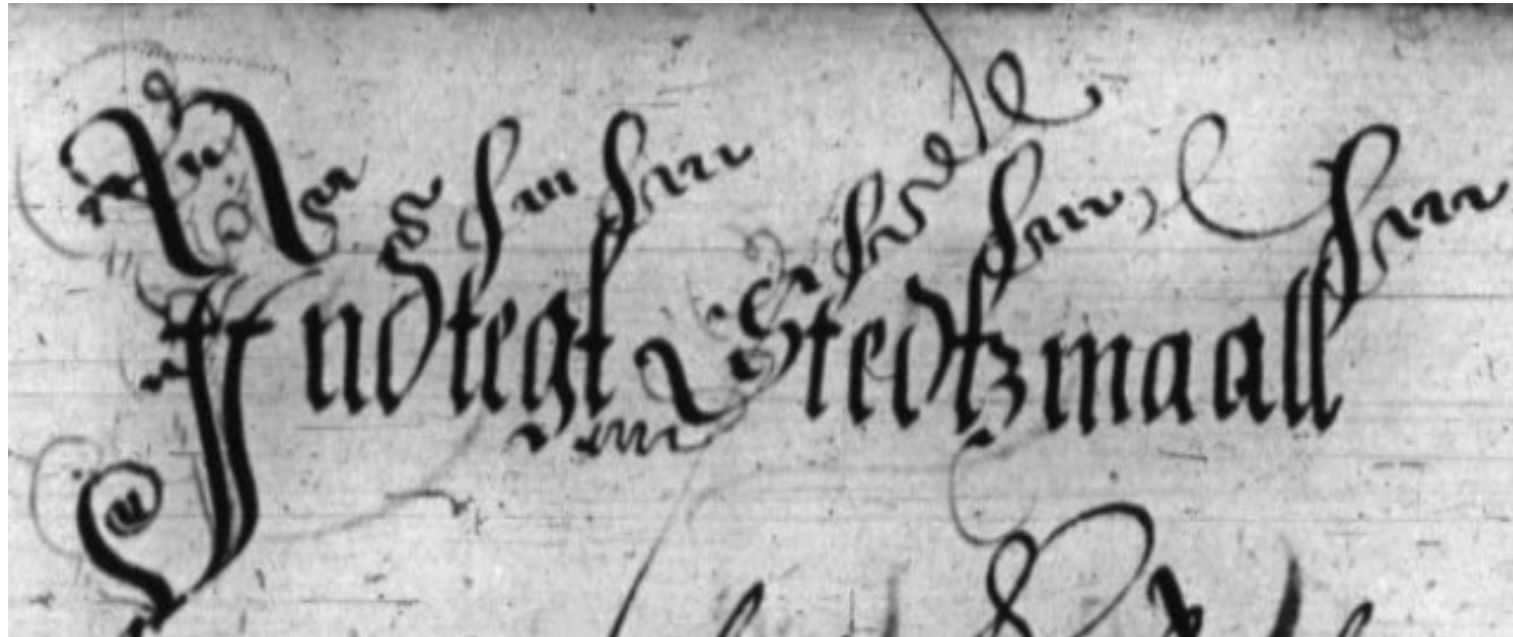 Indtegt Stedtzmaall